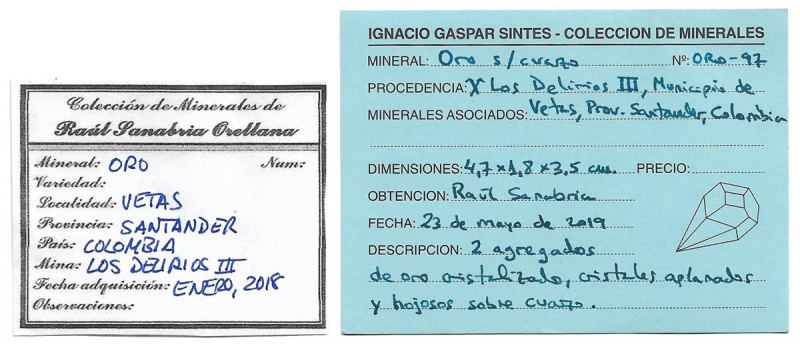 Colección de Minerales de
Raúl Sanabria Orellana
Mineral: ORO Num:
Variedad:
Localidad: VETAS
Provincia: SANTANDER
País: COLOMBIA
Mina: LOS DELIRIOS III
Fecha adquisición: ENERO, 2018
Observaciones:
IGNACIO GASPAR SINTES - COLECCION DE MINERALES
MINERAL: Oro s/cuarzo Nº: ORO-97
PROCEDENCIA: Los Delirios III, Municipio de
MINERALES ASOCIADOS: Vetas, Prov. Santander, Colombia
DIMENSIONES: 4,7x1,8x3,5 cm. PRECIO:
OBTENCION: Raúl Sanabria
FECHA: 23 de mayo de 2019
DESCRIPCION: 2 agregados
de oro cristalizado, cristales aplanados
y hojosos sobre cuarzo.